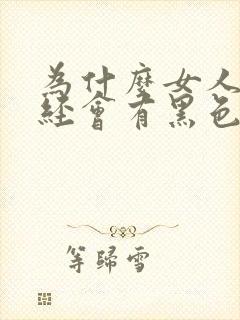 為什麼女人
經會有黑色
等歸雪